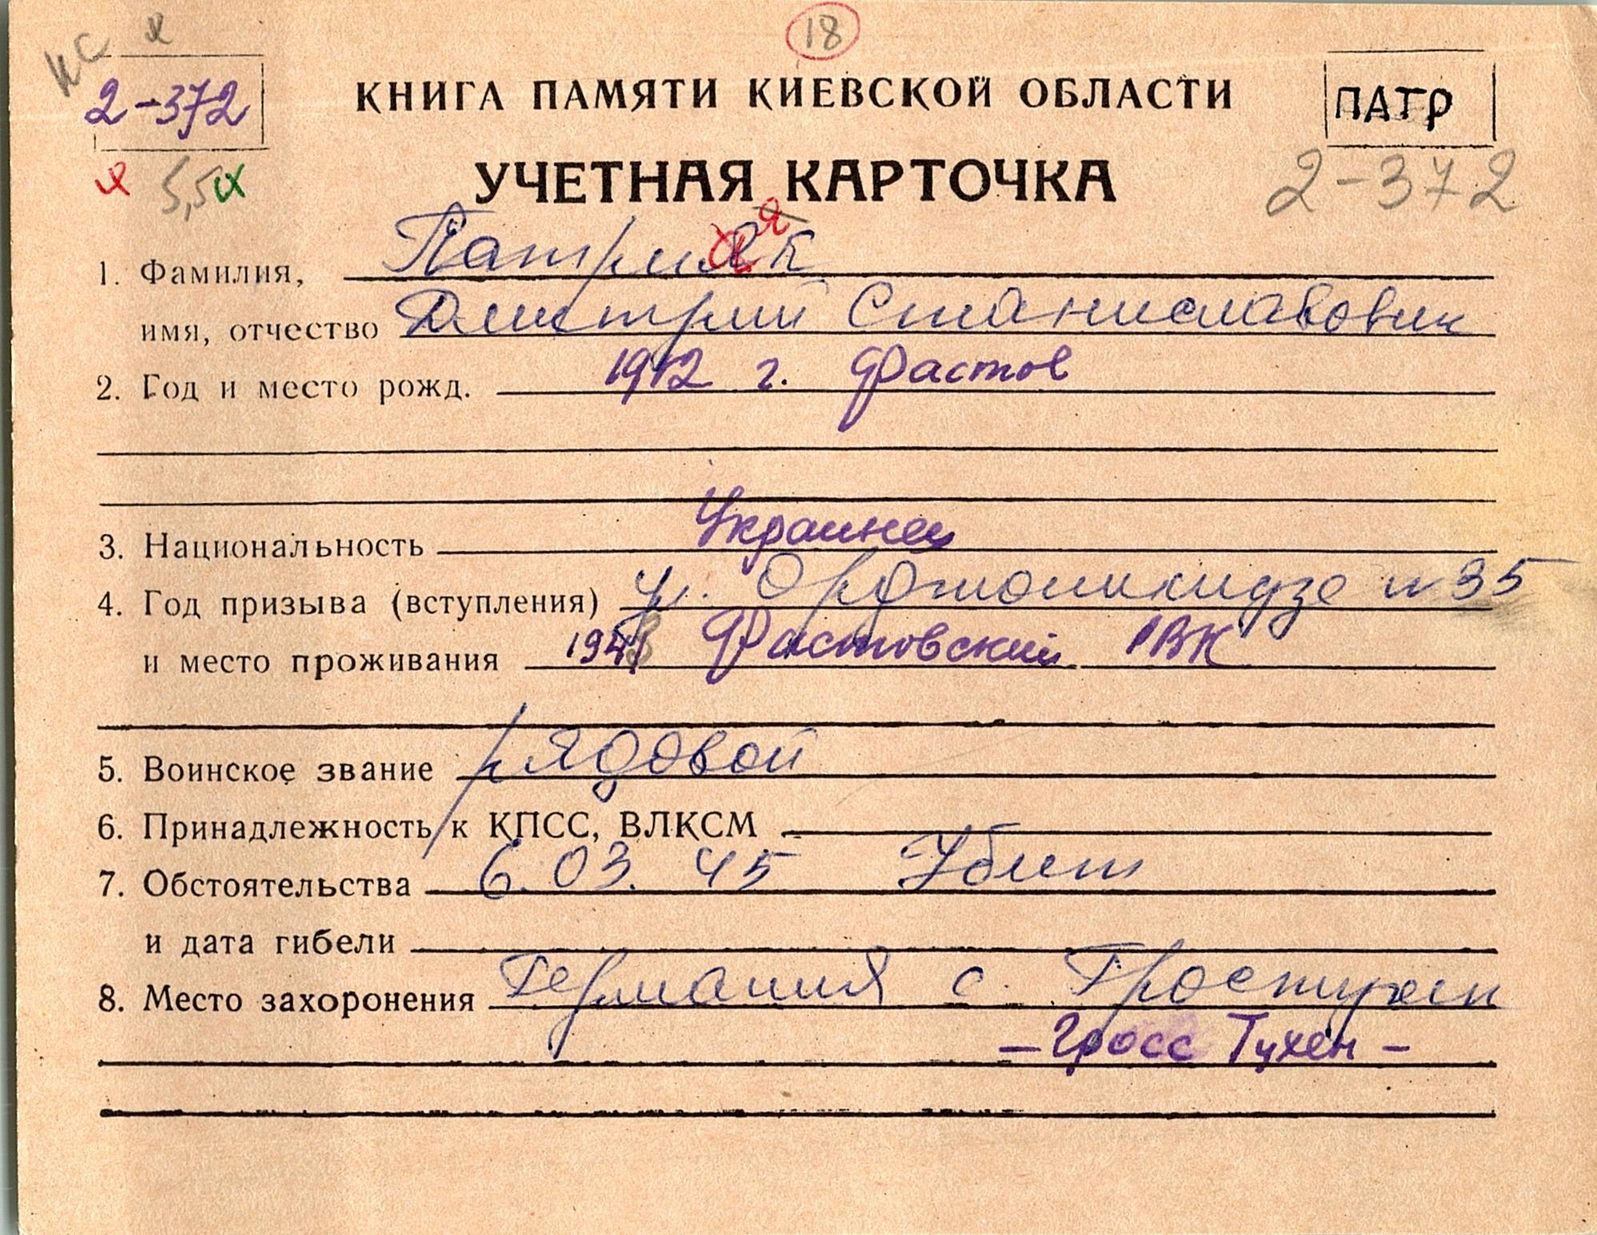 18
2-372
КНИГА ПАМЯТИ КИЕВСКОЙ ОБЛАСТИ
ПАТР
УЧЕТНАЯ КАРТОЧКА
2-372
5,5
1. Фамилия, Патрияк
я
имя, отчество Дмитрий Станиславович
2. Год и место рожд. 1912 г. Фастов
3. Национальность Украинец
4. Год призыва (вступления) ул. Орджоникидзе н 35
и место проживания Фастовский РВК
5. Воинское звание рядовой
6. Принадлежность к КПСС, ВЛКСМ
7. Обстоятельства 6.03.45 Убит
и дата гибели
8. Место захоронения Германия с. Гростухен
- Гросс Тухен -